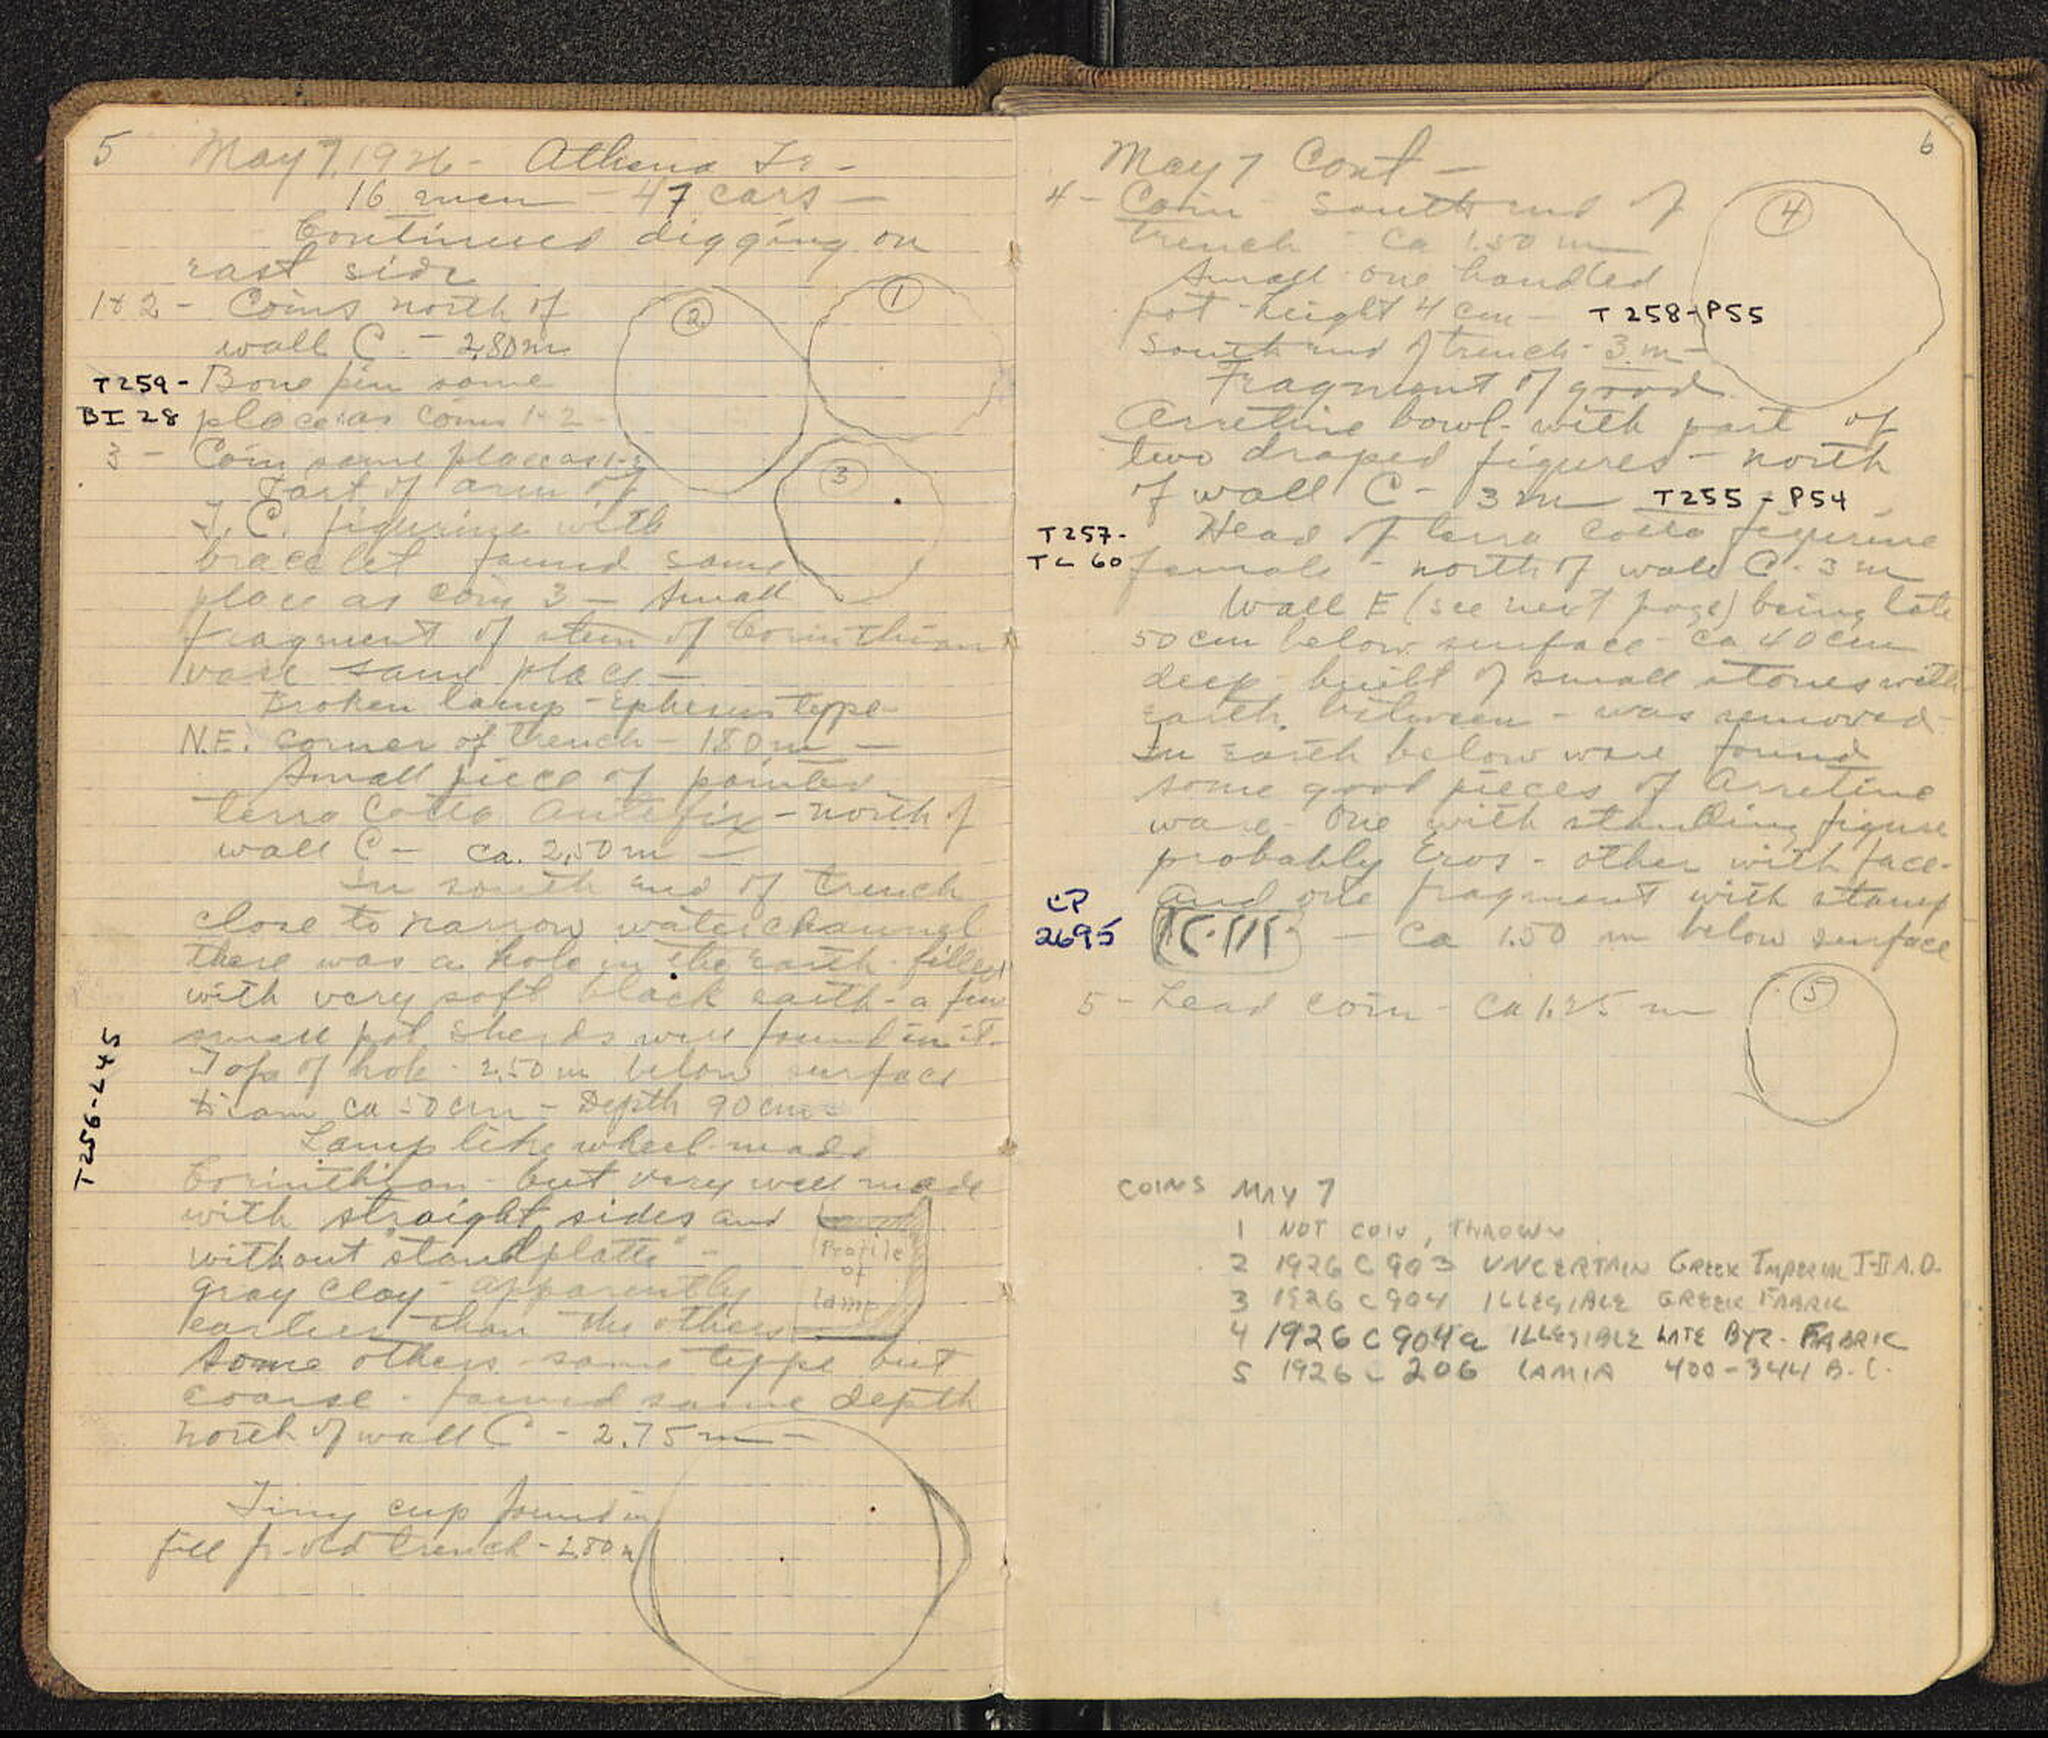 5 May 7, 1926 - Athena Tr -
16 men - 47 cars -
Continued digging on
east side
1+2 - Coins north of
wall C. - 2,80 m
T259 - Bone pin same
BI 28 place as coins 1+2 -
3 - Coin same place as 1-2
Part of arm of
T. C. figurine with
bracelet found same
place as coin 3 - Small
fragment of stem of Corinthian
vase same place -
Broken lamp - Ephesus type -
N.E. corner of trench - 180 m -
Small piece of painted
terra cotta antefix - north of
wall C - ca. 2,50 m -
In south end of trench
close to narrow water channel
there was a hole in the earth - filled
with very soft black earth - a few
small pot sherds were found in it.
Top of hole - 2,50 m below surface
diam ca 50 cm - Depth 90 cm -
T256-L45
Lamp like wheel-made
Corinthian - but very well made
with straight sides and
without "standplatte" -
gray clay - apparently
earlier than the others -
Profile
of
lamp
Some others same type but
coarse - found same depth
north of wall C - 2.75 m -
Tiny cup found in
fill fr. old trench - 2,80 m
1
2
3
6
May 7 Cont -
4 - Coin - South end of
trench - ca 1.50 m
Small one handled
pot - height 4 cm - T 258 - P55
South end of trench - 3 m -
Fragment of good
Arretine bowl - with part of
two draped figures - north
of wall C - 3 m T255 - P54
T257- Head of terra cotta figurine
TC 60 female - north of wall C - 3 m
Wall E (see next page) being late
50 cm below surface - ca 40 cm
deep - built of small stones with
earth between - was removed -
In earth below were found
some good pieces of Arretine
ware - One with standing figure
probably Eros - other with face -
and one fragment with stamp
CP
2695 - Ca 1.50 m below surface
5 - Lead coin - Ca 1.25 m
4
5
COINS MAY 7
1 NOT COIN, THROWN
2 1926 C 903 UNCERTAIN GREEK IMPERIAL I-II A.D.
3 1926 C 904 ILLEGIBLE GREEK FABRIC
4 1926 C 904a ILLEGIBLE LATE BYZ. FABRIC
5 1926 C 206 LAMIA 400-344 B.C.